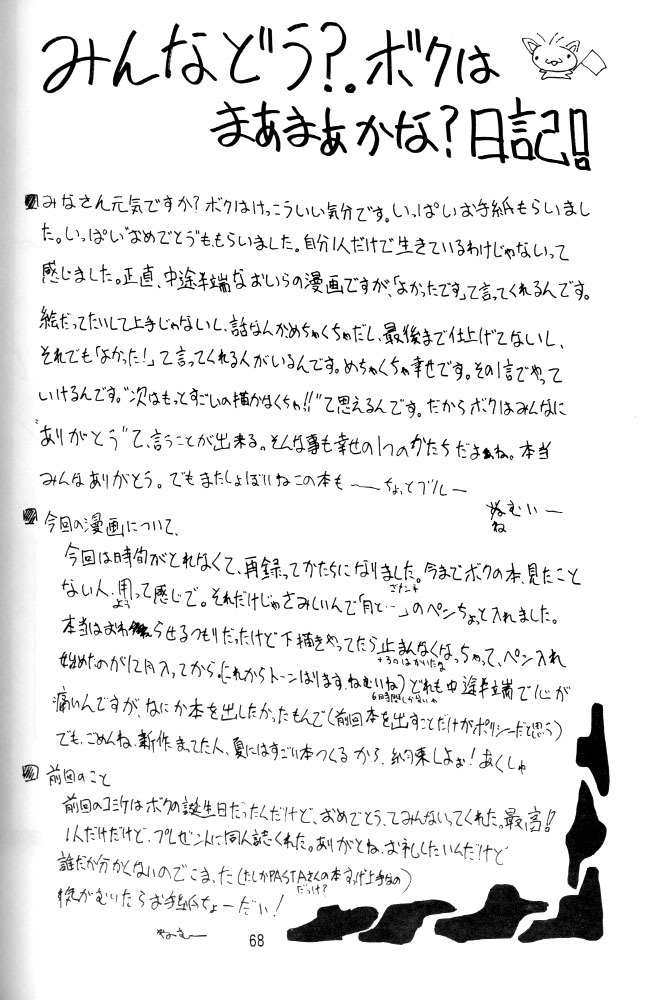 みんなどう?。ボクは
まあまあかな?日記!!
みなさん元気ですか?ボクはけっこういい気分です。いっぱいお手紙もらいまし
た。いっぱい"おめでとう"ももらいました。自分1人だけで生きているわけじゃないって
感じました。正直、中途半端なおいらの漫画ですが、「よかったです」て言ってくれるんです。
絵だってたいして上手じゃないし、話なんかめちゃくちゃだし、最後まで仕上げてないし、
それでも「よかった!」て言ってくれる人がいるんです。めちゃくちゃ幸せです。その1言でやって
いけるんです。"次はもっとすごいの描かなくちゃ!!"て思えるんです。だからボクはみんなに
"ありがとう"て、言うことが出来る。そんな事も幸せの1つのかたちだよぉね。本当
みんなありがとう。でもまたしょぼいねこの本も――ちょっとブルー
ねむいー
ね
今回の漫画について、
今回は時間がとれなくて、再録ってかたちになりました。今までボクの本、見たこと
ない人、用って感じで。それだけじゃさみしいんで「月と…」のペンちょっと入れました。
よう
本当はおわらせるつもりだったけど下描きやってたら止まんなくなっちゃって、ペン入れ
始めたのが12月入ってから。(これからトーンはります、ねむいね)どれも中途半端で心が
6時間しかないや
痛いんですが、なにか本を出したかったもんで(前回本を出すことだけがポリシーだと思う)
でも、ごめんね、新作まってた人、夏にはすごい本つくるから、約束しよぉ!あくしゅ
前回のこと
前回のコミケはボクの誕生日だったんだけど、おめでとう、てみんないってくれた。最高!!
1人だけだけど、プレゼントに同人誌くれた。ありがとね、お礼したいんだけど
誰だか分かんないのでこまった(たしかPASTAさんの本すっげ上手なの)
だっけ?
気がむいたらお手紙ちょーだい!
ねむー
68